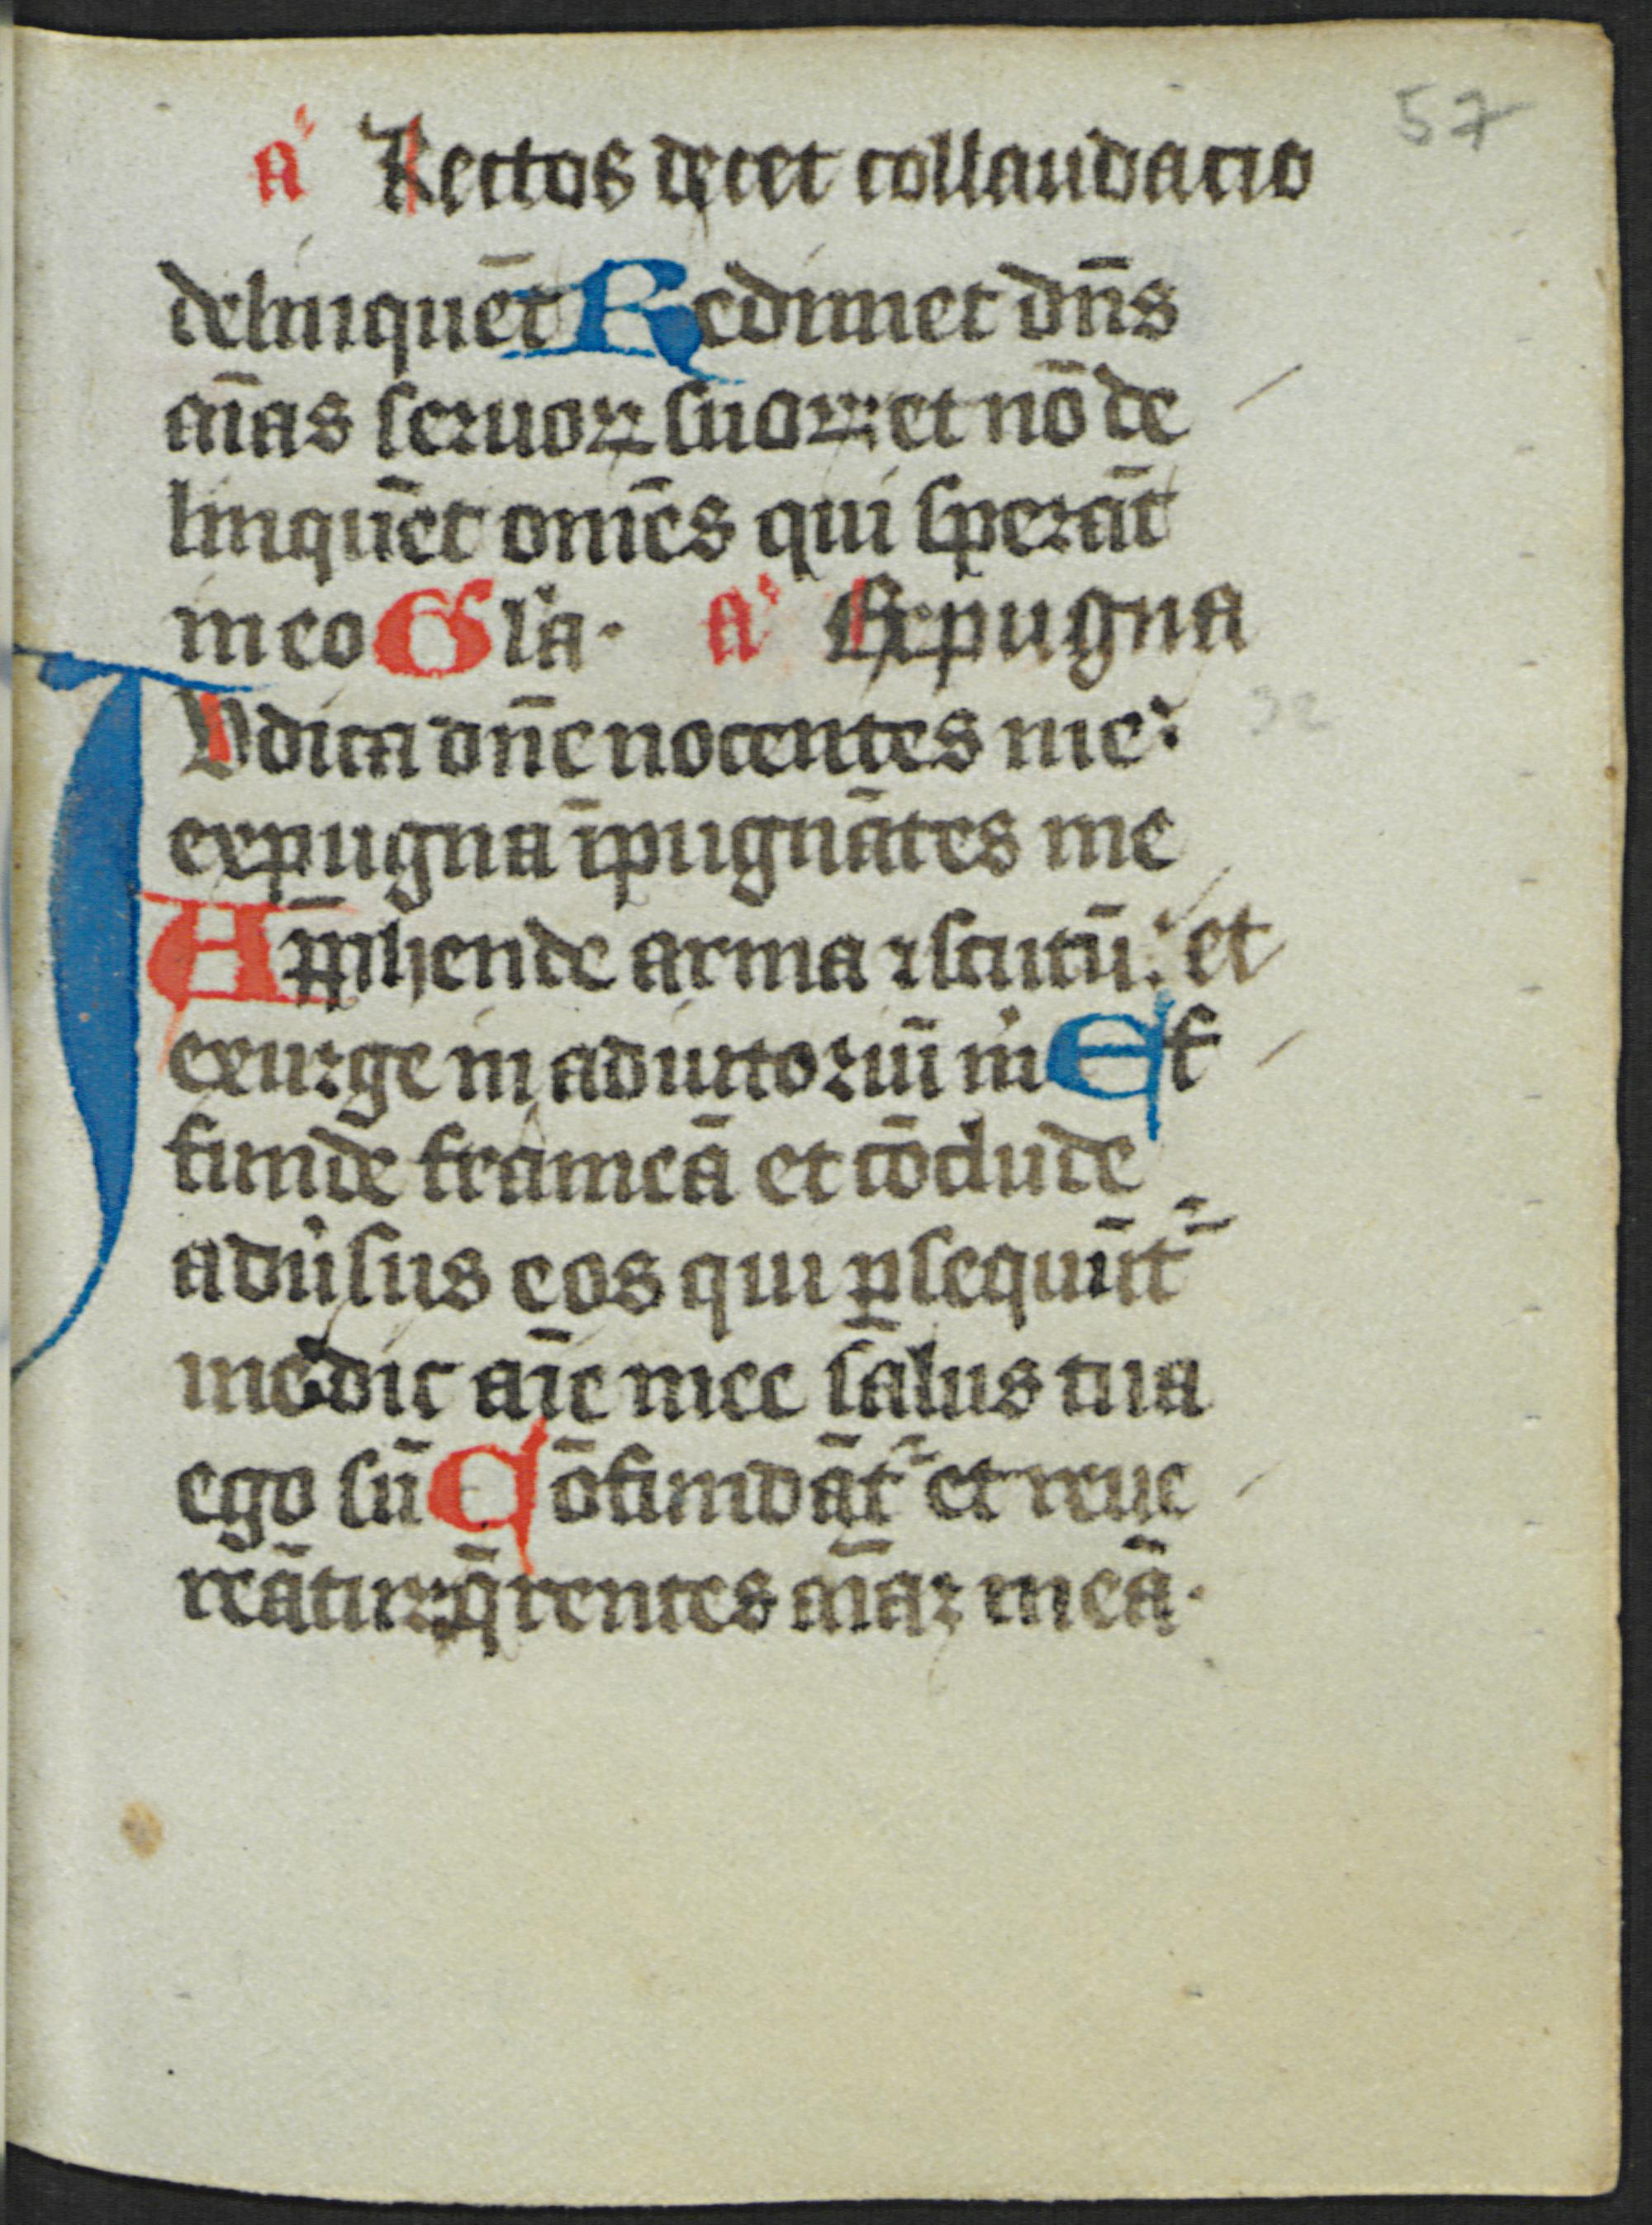 57
a Rectos decet collaudacio
delinquēt Redimet dn̄s
aīas seruoꝝ suoꝝ: et nō de
linquēt om̄es qui sperāt
in eo Gl'a. a Expugna
IVdica dn̄e nocentes me:
32
expugna īpugnātes me
App̄hende arma ⁊ scutū: et
exurge in adiutoriū m̄ Ef
funde frameā et cōclude
adu'sus eos qui ꝑsequūt᷑
me dic aīe mee salus tua
ego sū Cōfundāt᷑ et reue
reāt᷑ q̄rentes aīaꝫ meā.